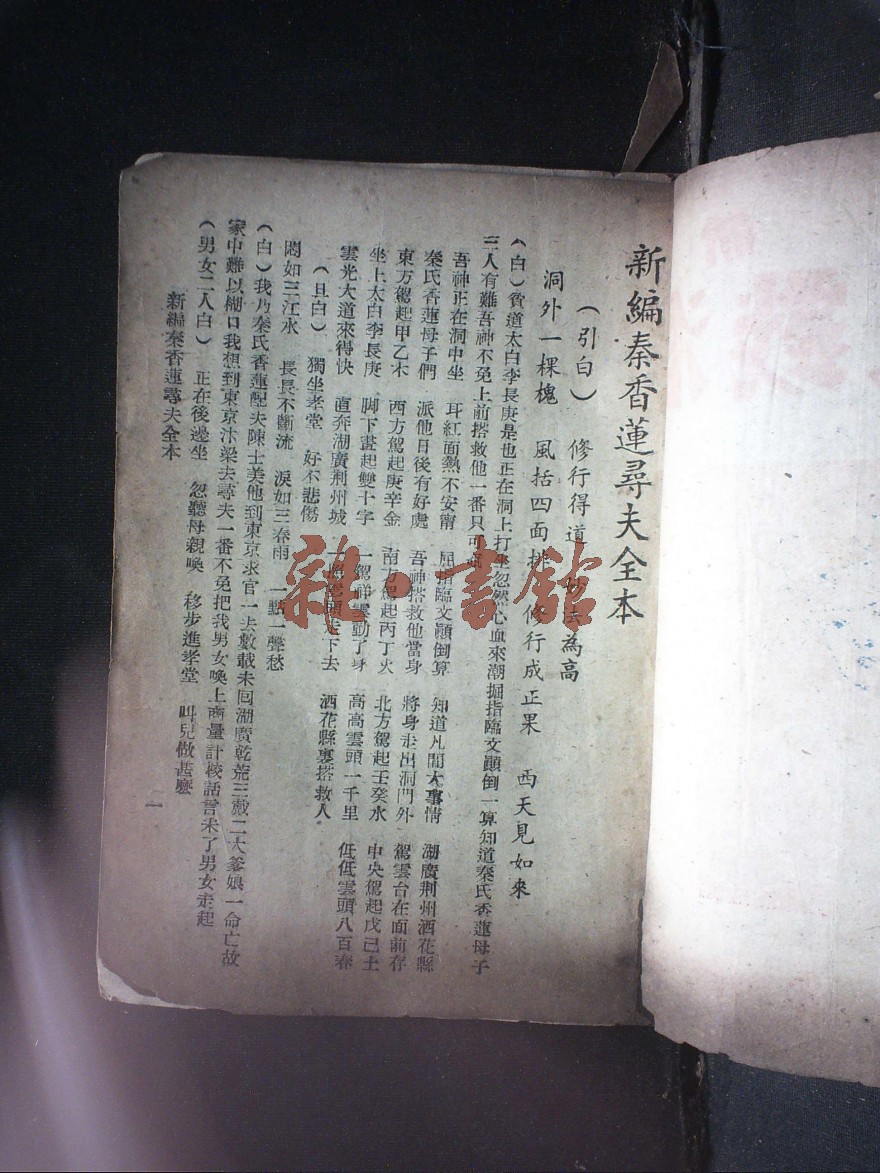 新編秦香蓮尋夫全本
（引白） 修行得道 為高
洞外一棵槐 風括四面排 修行成正果 西天見如來
（白）貧道太白李長庚是也正在洞上打坐忽然心血來潮掘指臨文顚倒一算知道秦氏香蓮母子
三人有難吾神不免上前搭救他一番只可
吾神正在洞中坐 耳紅面熱不安甯 屈指臨文顚倒算 知道凡間大事情 湖廣荆州洒花縣
秦氏香蓮母子們 派他日後有好處 吾神搭救他當身 將身走出洞門外 駕雲台在面前存
東方駕起甲乙木 西方駕起庚辛金 南方駕起丙丁火 北方駕起壬癸水 中央駕起戊己土
坐上太白李長庚 脚下畫起雙十字 一駕祥雲動了身 高高雲頭一千里 低低雲頭八百春
雲光大道來得快 直奔湖廣荆州城 一 下去 洒花縣裏搭救人
（旦白） 獨坐孝堂 好不悲傷
悶如三江水 長長不斷流 淚如三春雨 一點一聲愁
（白）我乃秦氏香蓮配夫陳士美他到東京求官一去數載未回湖廣乾荒三載二大爹娘一命亡故
家中難以糊口我想到東京汴梁去尋夫一番不免把我男女喚上商量計校話言未了男女走起
（男女二人白） 正在後邊坐 忽聽母親喚 移步進孝堂 叫兒做甚麽
新編秦香蓮尋夫全本 一
雜·書館